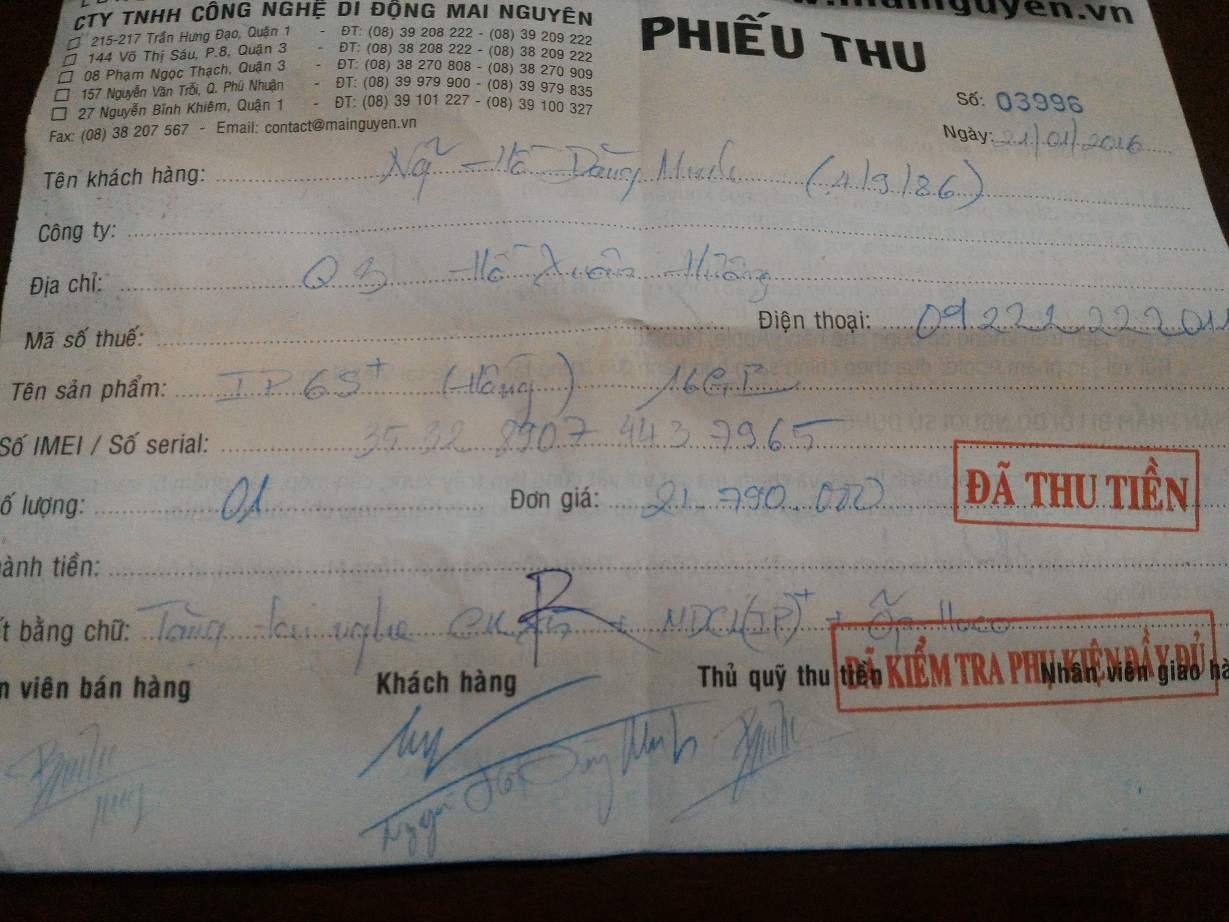 CTY TNHH CÔNG NGHỆ DI ĐỘNG MAI NGUYÊN
mainguyen.vn
215-217 Trần Hưng Đạo, Quận 1 - ĐT: (08) 39 208 222 - (08) 39 209 222
144 Võ Thị Sáu, P.8, Quận 3 - ĐT: (08) 38 208 222 - (08) 38 209 222
08 Phạm Ngọc Thạch, Quận 3 - ĐT: (08) 38 270 808 - (08) 38 270 909
157 Nguyễn Văn Trỗi, Q. Phú Nhuận - ĐT: (08) 39 979 900 - (08) 39 979 835
27 Nguyễn Bỉnh Khiêm, Quận 1 - ĐT: (08) 39 101 227 - (08) 39 100 327
Fax: (08) 38 207 567 - Email: contact@mainguyen.vn
PHIẾU THU
Số: 03996
Ngày: 21/01/2016
Tên khách hàng: Hồ (4/9/86)
Công ty:
Địa chỉ: Q3 Hồ Xuân Hương
Mã số thuế: Điện thoại: 09 222 222 01
Tên sản phẩm: IP 6S+ (Hồng) 16GB
Số IMEI / Số serial: 35 32 8907 443 7965
ố lượng: 01 Đơn giá: 21.790.000
ĐÃ THU TIỀN
ành tiền:
t bằng chữ: Tặng tai nghe + MDCL(IP)+ + Ốp Hoco
ĐÃ KIỂM TRA PHỤ KIỆN ĐẦY ĐỦ
n viên bán hàng Khách hàng Thủ quỹ thu tiền Nhân viên giao hà